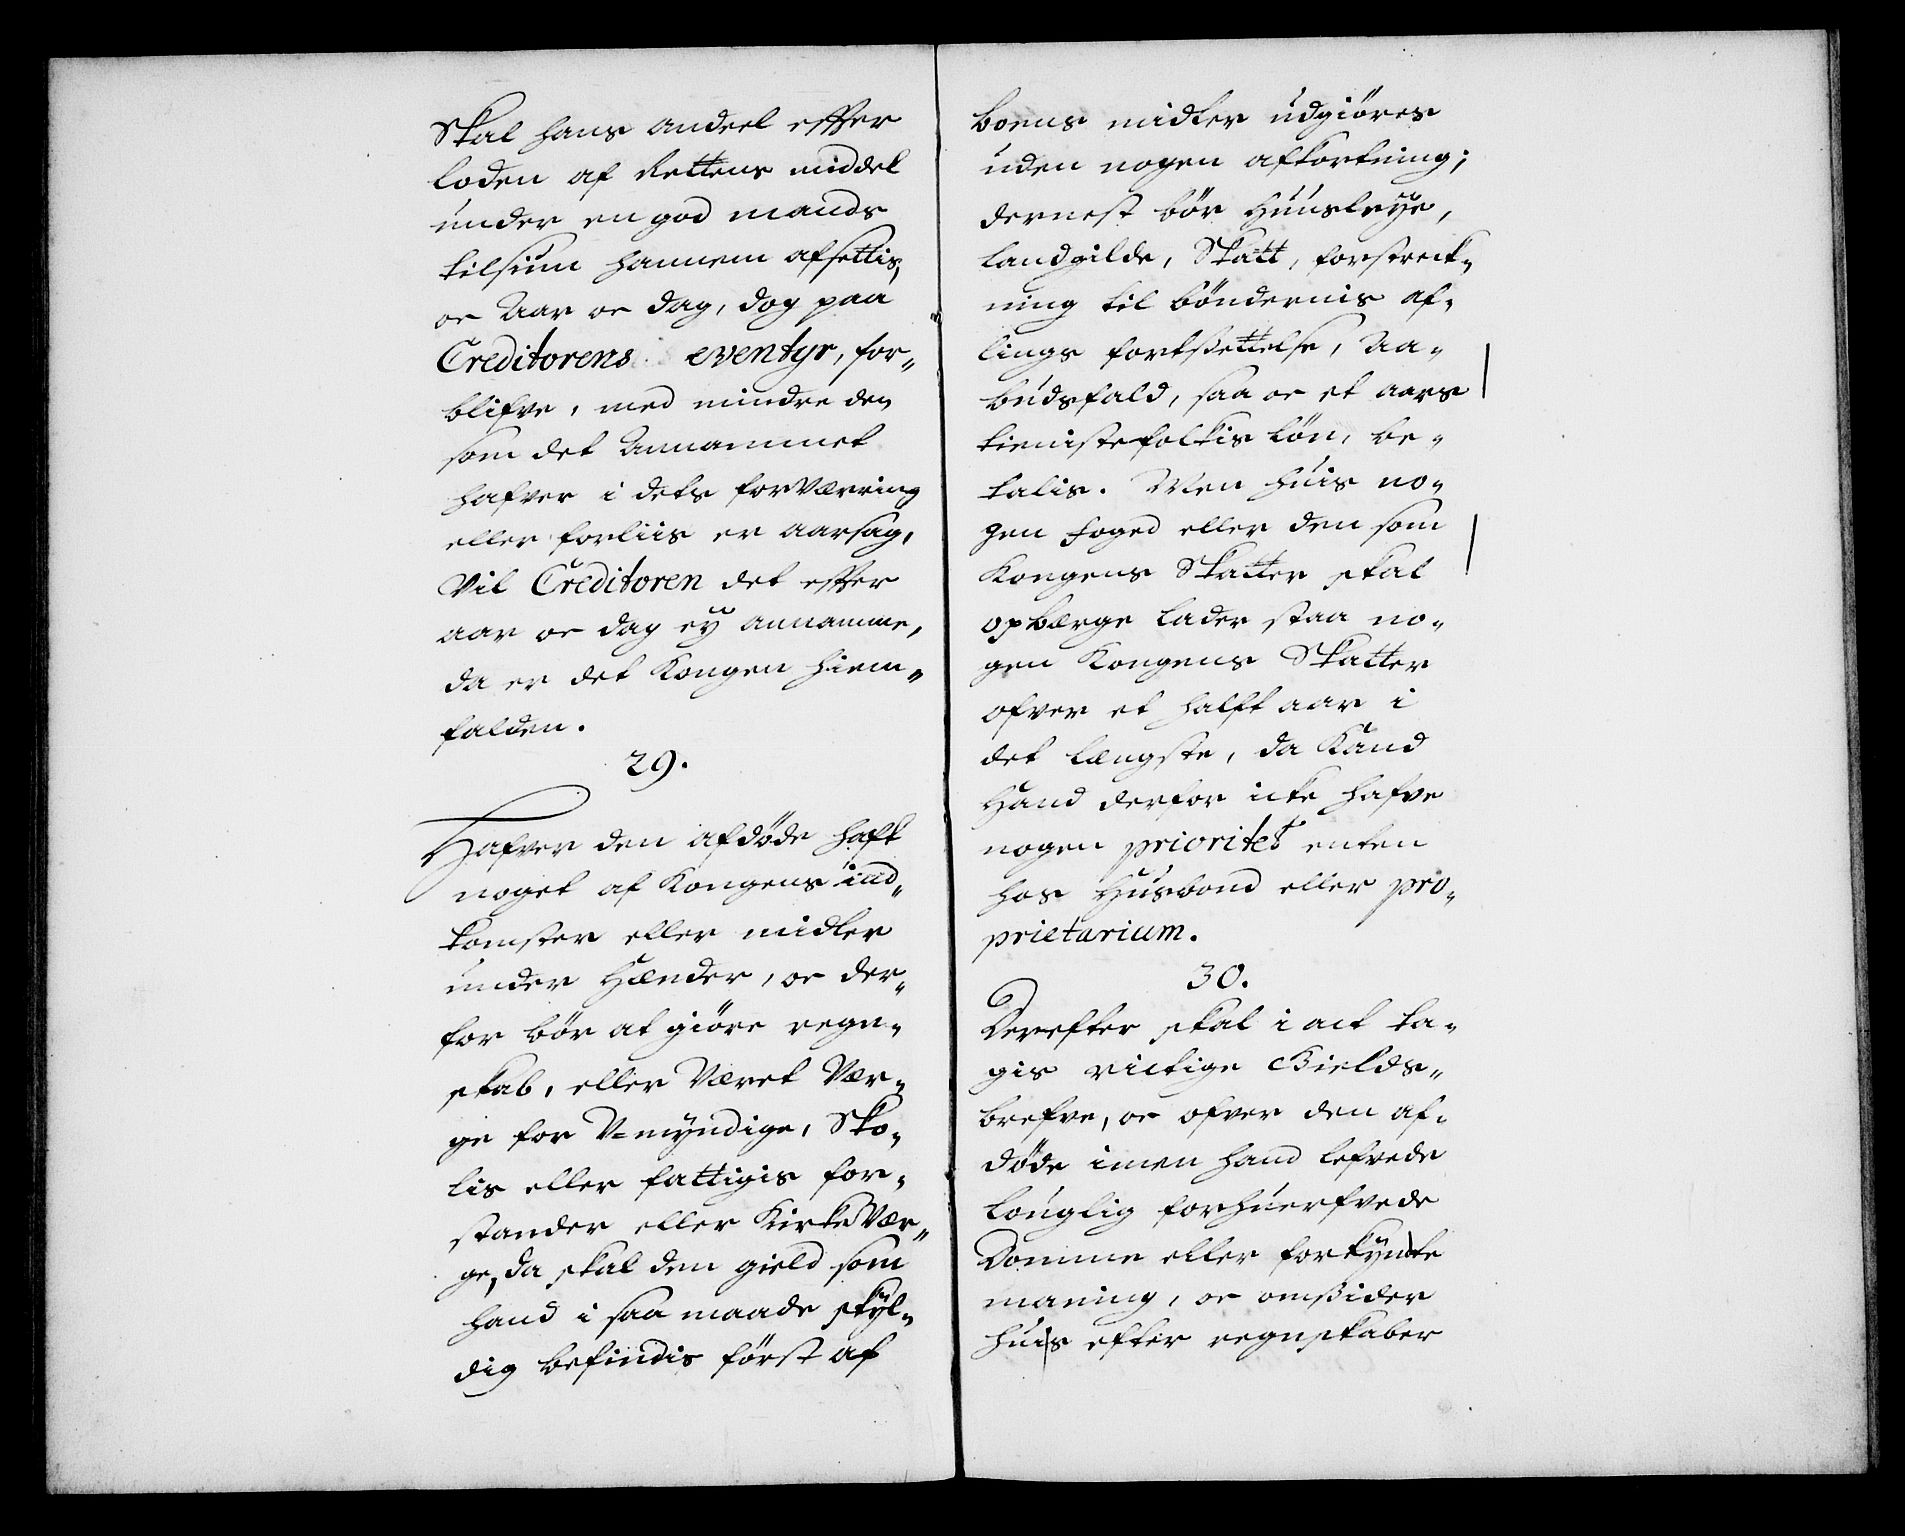 Skal hans andeel effter
loden af Rettens middel
under en god mands
tilsiun hannem afsettis,
oc Aar oc dag, dog paa
Creditorens eventyr, for-
blifve, med mindre den
som det Annammet
hafver i dets forværring
eller forliis er aarsag,
Vil Creditoren det effter
aar oc dag eÿ annamme,
da er det Kongen hiem-
falden.
29.
Hafver den afdøde haft
noget af Kongens ind-
komster eller midler
under Hænder, oc der-
for bør at giøre regn-
skab, eller Været Vær-
ge for V=mÿndige, Sko-
lis eller fattigis for-
stander eller Kirke Vær-
ge, da skal den gield som
hand i saa maade skÿl-
dig befindis først af
boens midler udgiøres
uden nogen afkortning;
dernest bør Huusleÿe,
landgilde, Skatt, forstreck-
ning til bøndernis af-
lings fortßettelse, Aa-
budsfald, saa oc et aars
tienistefolkis løn, be-
talis. Men huis no-
gen foged eller den som
Kongens Skatter skal
opbærge lader staa no-
gen Kongens Skatter
ofver et halft aar i
det længste, da Kand
Hand derfor icke hafve
nogen prioritet enten
hos Husbond eller pro-
prietarium.
30.
Derefter skal i act ta-
gis rictige Gields-
brefve, oc ofver den af-
døde imen hand lefvede
louglig forhuerfvede
Domme eller forkÿndte
maning, oc omßider
huis efter regnskaber